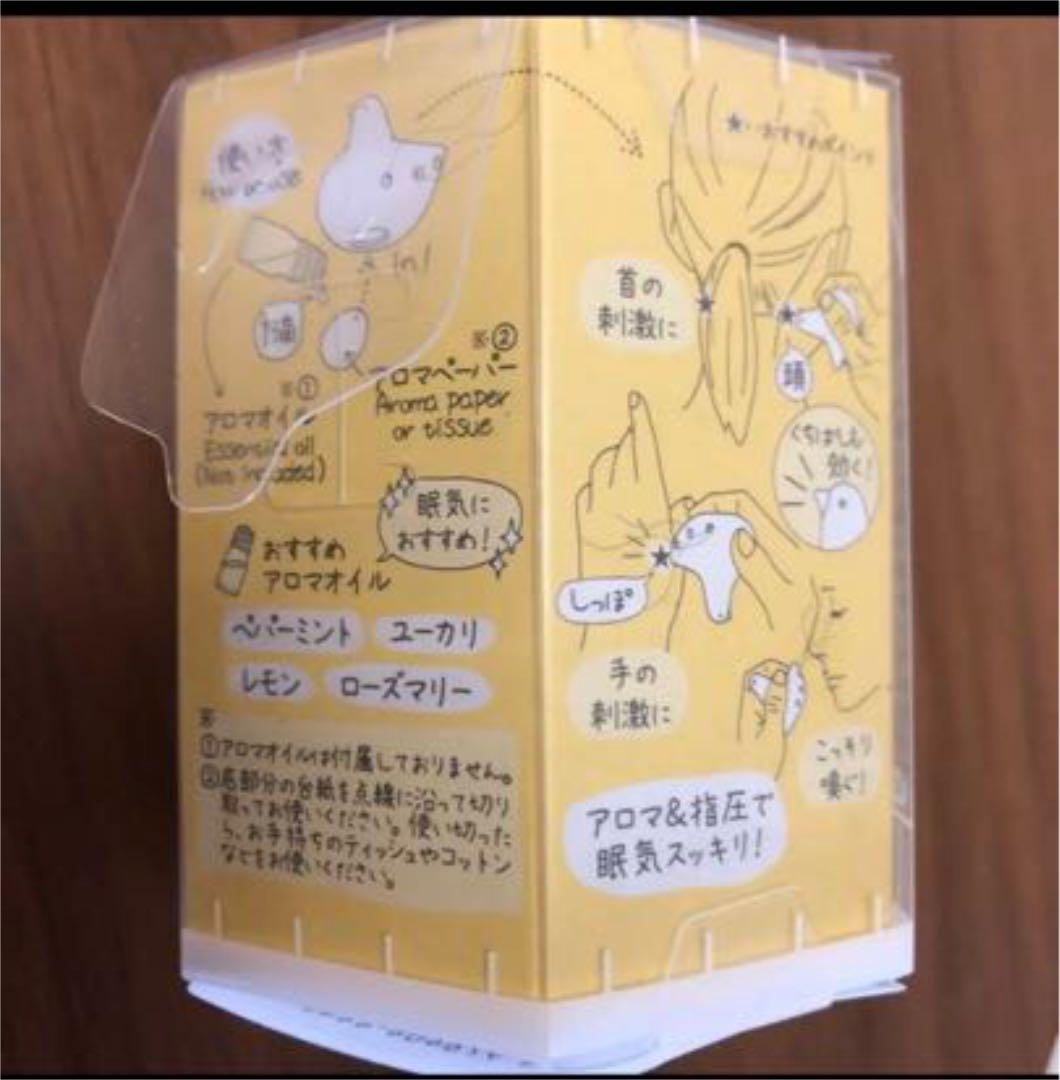 使い方
How to use
in!
1滴
※①
アロマオイル
Essential oil
(Not included)
※②
アロマペーパー
Aroma paper
or tissue
眠気に
おすすめ!
おすすめ
アロマオイル
ペパーミント
ユーカリ
レモン
ローズマリー
※
①アロマオイルは付属しておりません。
②底部分の台紙を点線に沿って切り
取ってお使いください。使い切った
ら、お手持ちのティッシュやコットン
などをお使いください。
★…おすすめポイント
首の
刺激に
頭
くちばしも
効く!
しっぽ
手の
刺激に
こっそり
嗅ぐ!
アロマ&指圧で
眠気スッキリ!